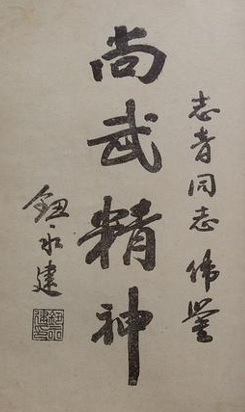 志青同志伟鉴
尚武精神
鈕永建